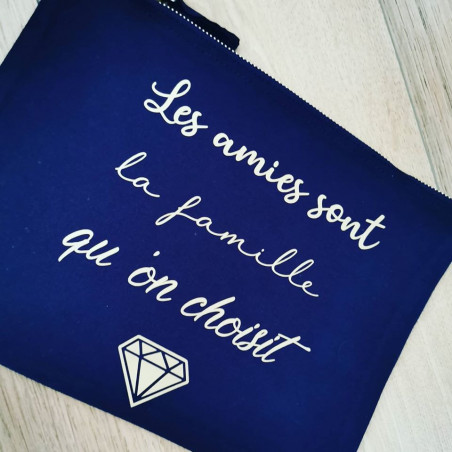 Les amies sont
la famille
qu'on choisit